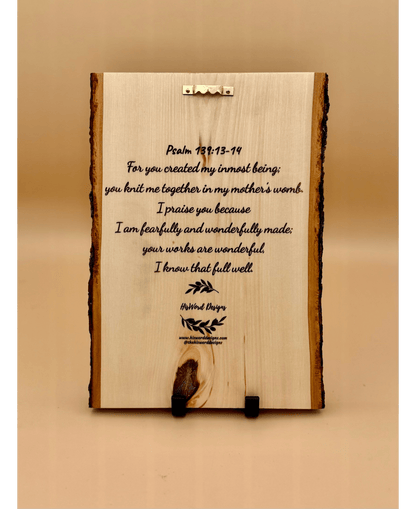 Psalm 139:13-14
For you created my inmost being;
you knit me together in my mother's womb.
I praise you because
I am fearfully and wonderfully made;
your works are wonderful,
I know that full well.
HisWord Designs
www.hisworddesigns.com
@thehisworddesigns